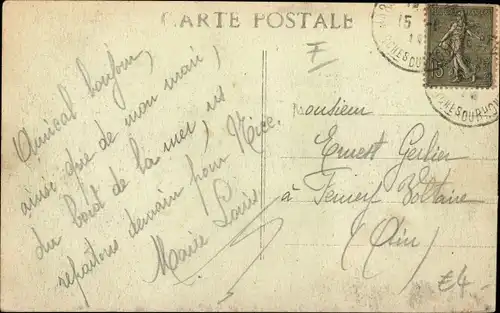 CARTE POSTALE
F
Amical bonjour,
ainsi que de mon mari,
du bord de la mer,
repartons demain pour Nice.
Marie Louis
Monsieur
Ernest Gerlier
à Ferney Voltaire
(Ain)
£4
15
CHES DU RHO